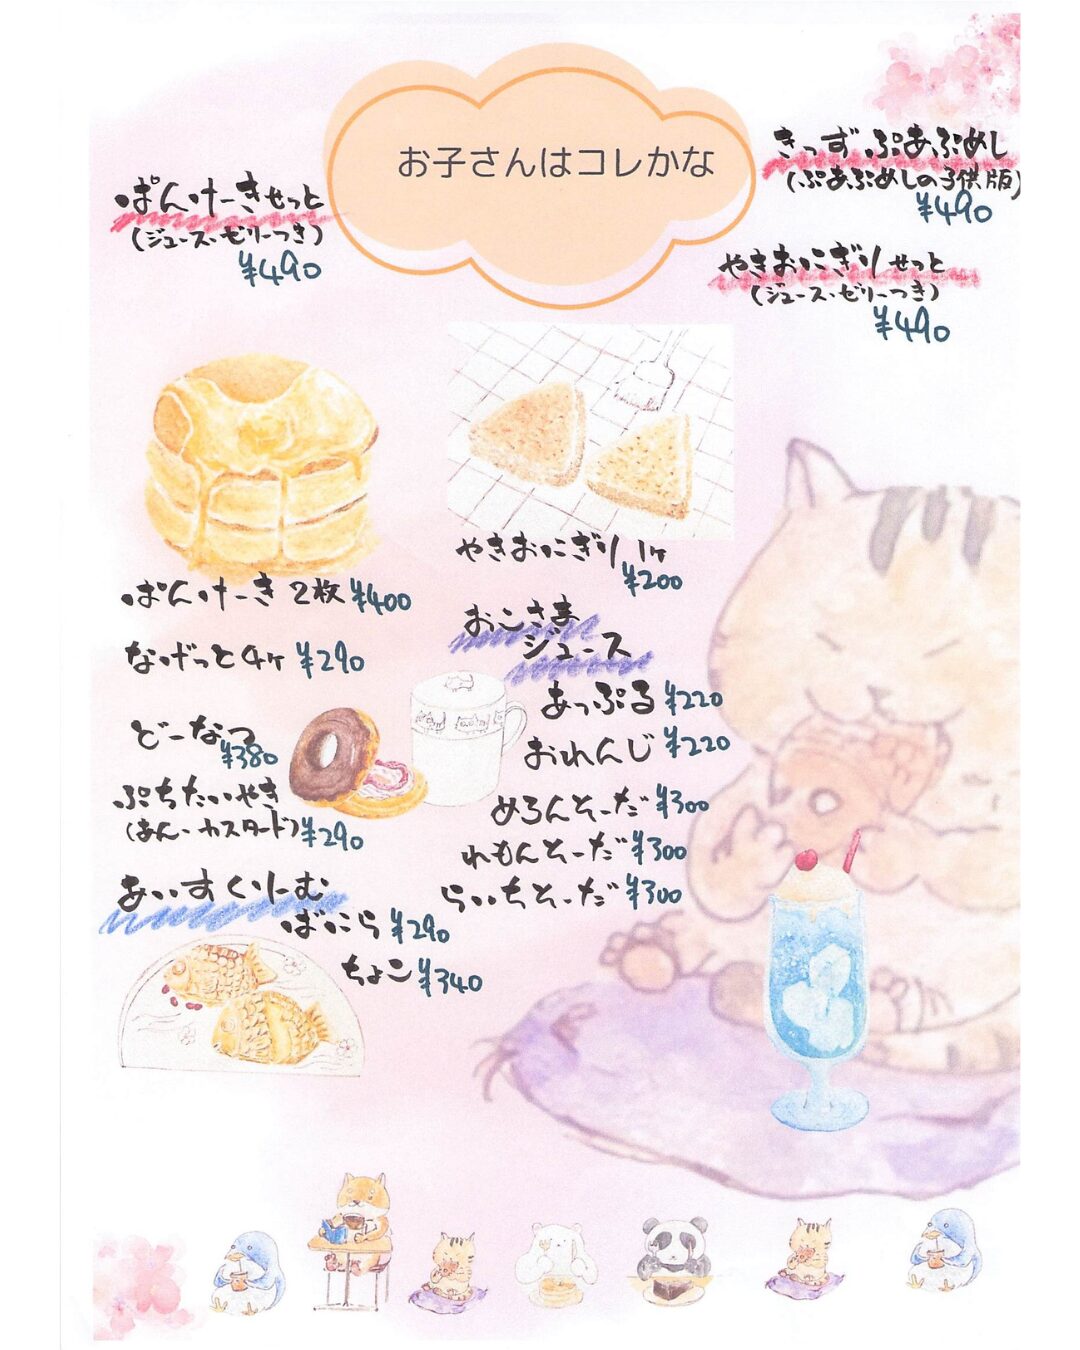 お子さんはコレかな
ぱんけーきせっと
(ジュース、ゼリーつき)
¥490
きっず ぷあぷあめし
(ぷあぷあめしの子供版)
¥490
やきおにぎりせっと
(ジュース、ゼリーつき)
¥490
ぱんけーき 2枚 ¥400
なげっと4ヶ ¥290
どーなつ
¥380
ぷちたいやき
(あん、カスタード) ¥290
あいすくりーむ
ばにら ¥290
ちょこ ¥340
やきおにぎり 1ヶ
¥200
おこさま
ジュース
あっぷる ¥220
おれんじ ¥220
めろんそーだ ¥300
れもんそーだ ¥300
らいちそーだ ¥300